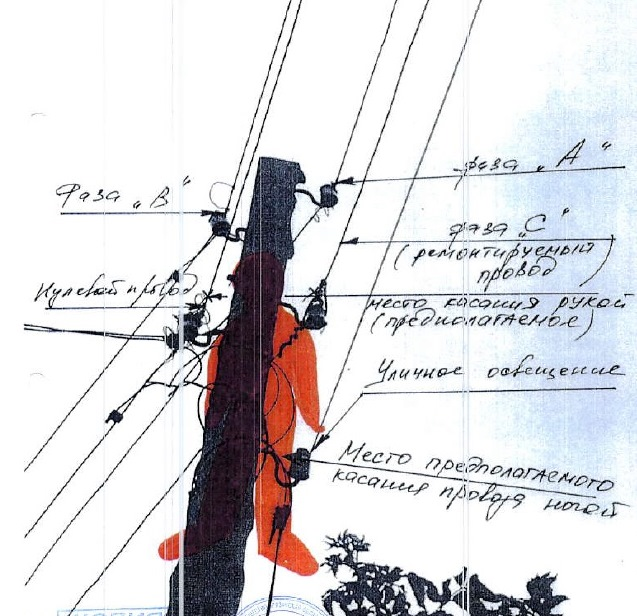 фаза „А“
Фаза „В“
фаза „С“
(ремонтируемый
провод)
Нулевой провод
место касания рукой
(предполагаемое)
Уличное освещение
Место предполагаемого
касания провода ногой